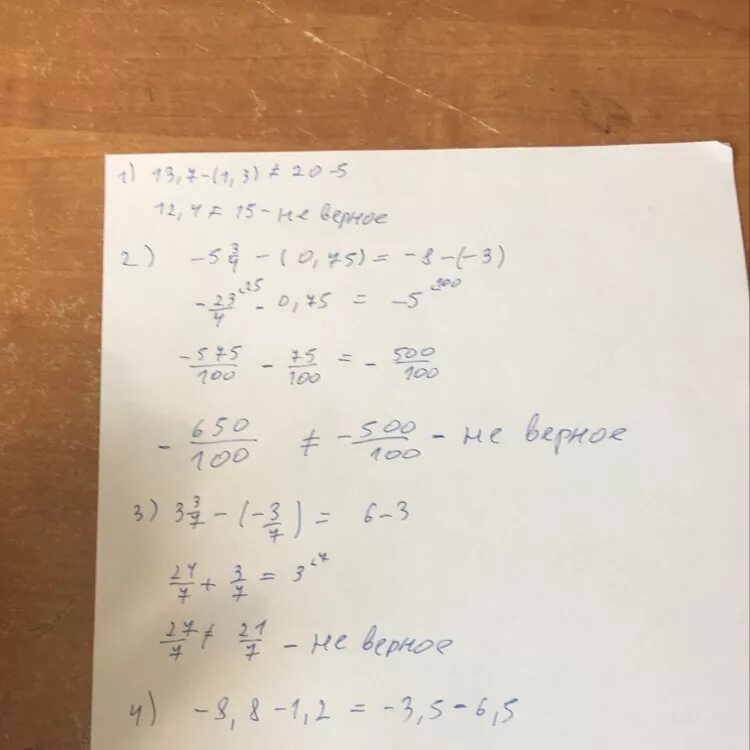 1) 13,7-(1,3) ≠ 20-5
12,4 ≠ 15 - не верное
2) -5 3/4 - (0,75) = -8-(-3)
-23/4 ·25 - 0,75 = -5 ·100
-575/100 - 75/100 = -500/100
-650/100 ≠ -500/100 - не верное
3) 3 3/7 - (-3/7) = 6-3
24/7 + 3/7 = 3 ·7
27/7 ≠ 21/7 - не верное
4) -8,8-1,2 = -3,5-6,5